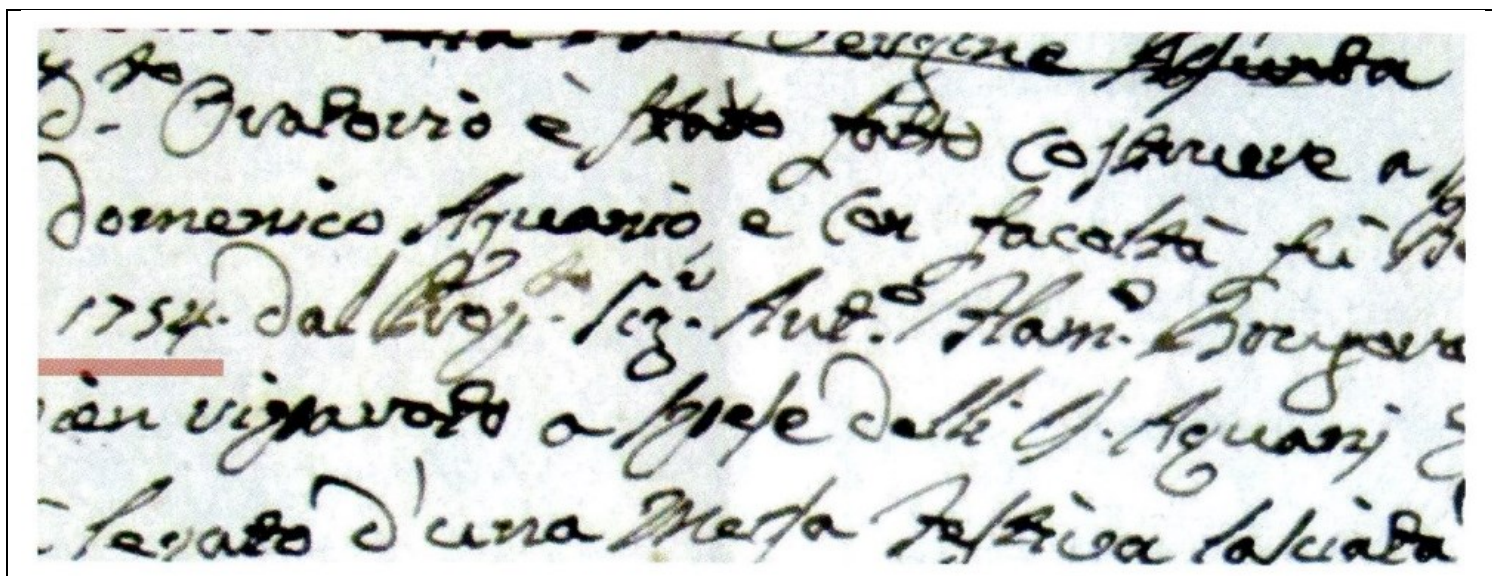 Vergine Assunta
d.to Oratorio è stato fatto costruere a
Domenico Aquario, e con facoltà fù
1754. dal Sig.r Ant.o Flam.o
vignavolo a spese delli SS. Aquarj
levato d'una Messa festiva lasciata